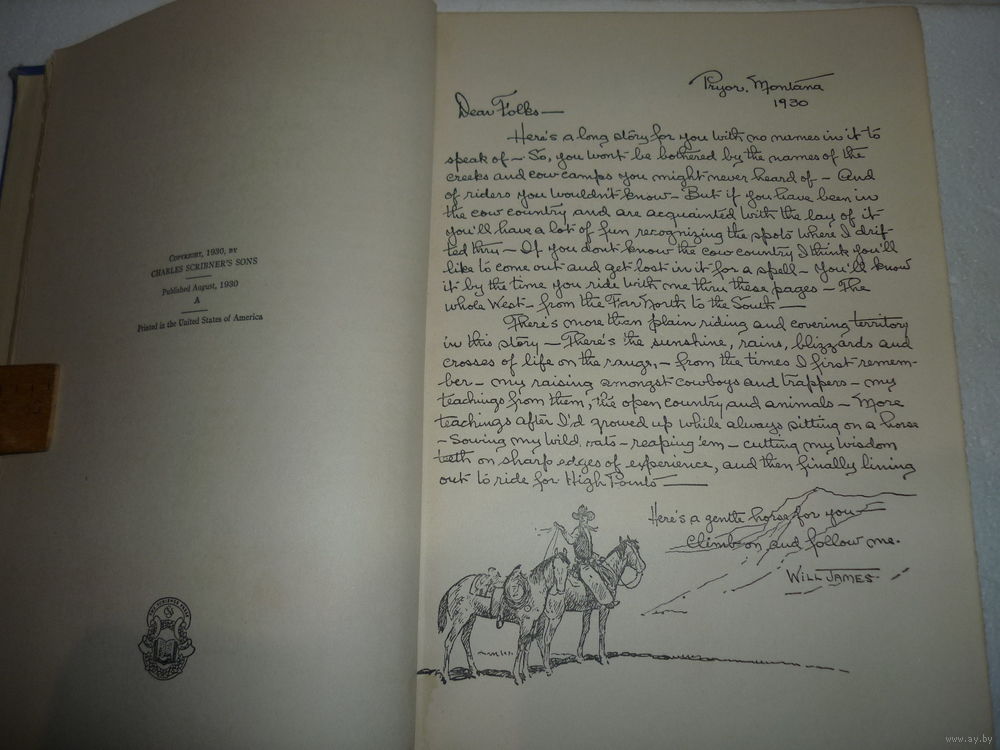 COPYRIGHT, 1930, BY
CHARLES SCRIBNER'S SONS
Published August, 1930
A
Printed in the United States of America
Pryor. Montana
1930
Dear Folks—
Here's a long story for you with no names in it to
speak of — So, you wont be bothered by the names of the
creeks and cow camps you might never heard of — And
of riders you wouldn't know — But if you have been in
the cow country and are acquainted with the lay of it
you'll have a lot of fun recognizing the spots where I drif-
ted thru — If you dont know the cow country I think you'll
like to come out and get lost in it for a spell — You'll know
it by the time you ride with me thru these pages — The
whole West — from the Far North to the South —
There's more than plain riding and covering territory
in this story — There's the sunshine, rains, blizzards and
crosses of life on the range, — from the times I first remem-
ber — my raising amongst cowboys and trappers — my
teachings from them, the open country and animals — More
teachings after I'd growed up while always sitting on a horse
— Sowing my wild oats — reaping 'em — cutting my wisdom
teeth on sharp edges of experience, and then finally lining
out to ride for High Points —
Here's a gentle horse for you —
Climb on and follow me.
WILL JAMES —
www.ay.by